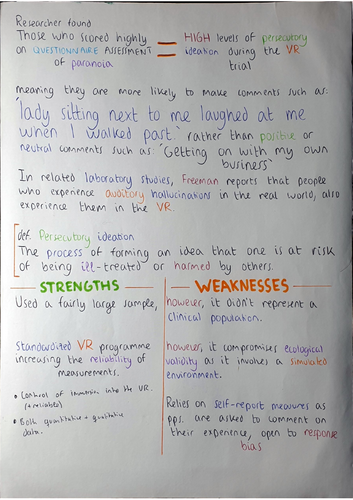 Researcher found
Those who scored highly = HIGH levels of persecutory
on QUESTIONNAIRE ASSESSMENT ideation during the VR
of paranoia trial
meaning they are more likely to make comments such as:
'lady sitting next to me laughed at me
when I walked past.' rather than positive or
neutral comments such as: 'Getting on with my own
business'
In related laboratory studies, Freeman reports that people
who experience auditory hallucinations in the real world, also
experience them in the VR.
def. Persecutory ideation
The process of forming an idea that one is at risk
of being ill-treated or harmed by others.
STRENGTHS
Used a fairly large sample,
Standardised VR programme
increasing the reliability of
measurements.
• Control of immersion into the VR.
(+ reliable)
• Both quantitative + qualitative
data.
WEAKNESSES
however, it didn't represent a
clinical population.
however, it compromises ecological
validity as it involves a simulated
environment.
Relies on self-report measures as
pps. are asked to comment on
their experience, open to response
bias